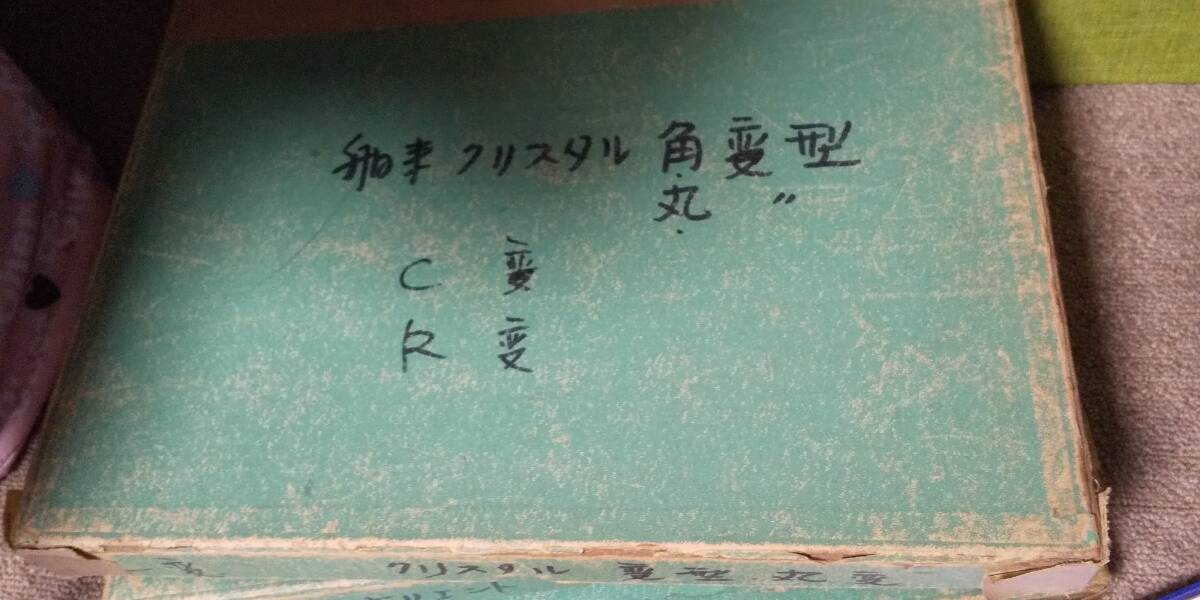 舶来クリスタル 角変型
丸 〃
C 変
R 変
クリスタル 変型 丸変